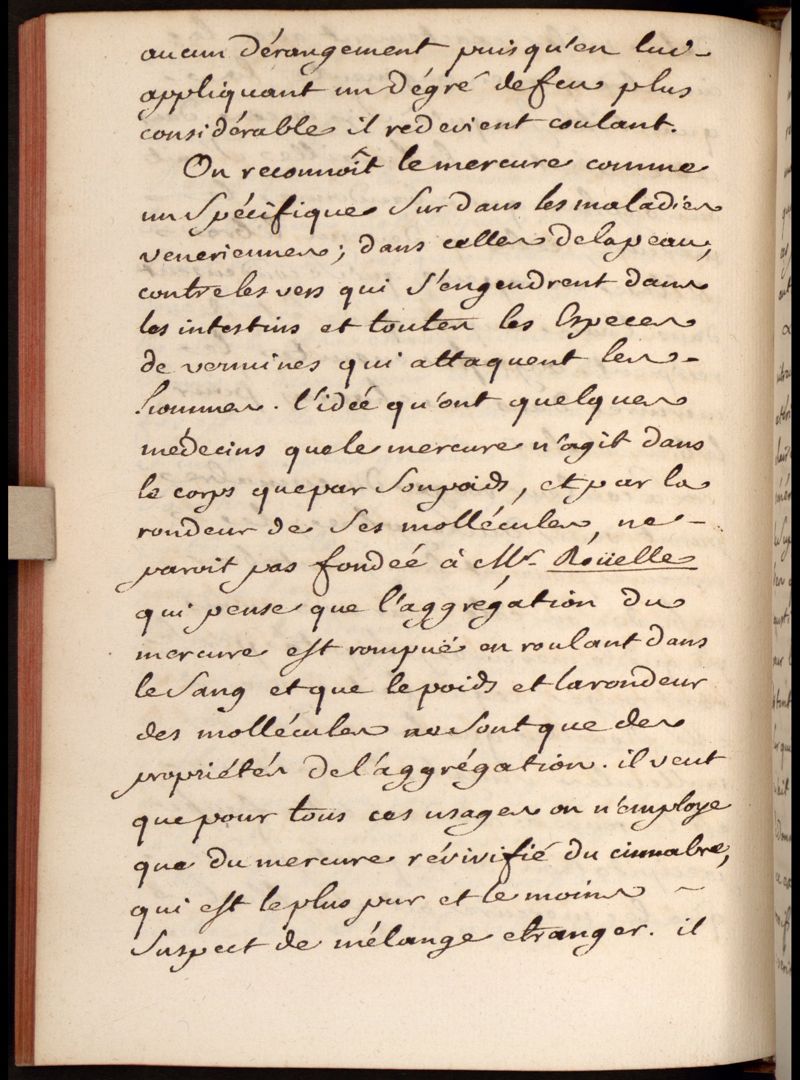 aucun dérangement puisqu'en lui -
appliquant un dégré de feu plus
considérable il redevient coulant.
On reconnoît le mercure comme
un Spécifique Sur dans les maladies
veneriennes; dans celles de la peau;
contre les vers qui S'engendrent dans
les intestins et toutes les Especes
de vermines qui attaquent les -
hommes. l'idée qu'ont quelques
médecins que le mercure n'agit dans
le corps que par Son poids, et par la
rondeur de Ses mollécules, ne -
paroit pas fondeé à Mr. Roüelle
qui pense que l'aggrégation du
mercure est rompuë en roulant dans
le Sang et que le poids et la rondeur
des mollécules ne Sont que des
propriétés de l'aggrégation. il veut
que pour tous ces usages on n'employe
que du mercure révivifié du cinnabre,
qui est le plus pur et le moins ~
Suspect de mélange etranger. il